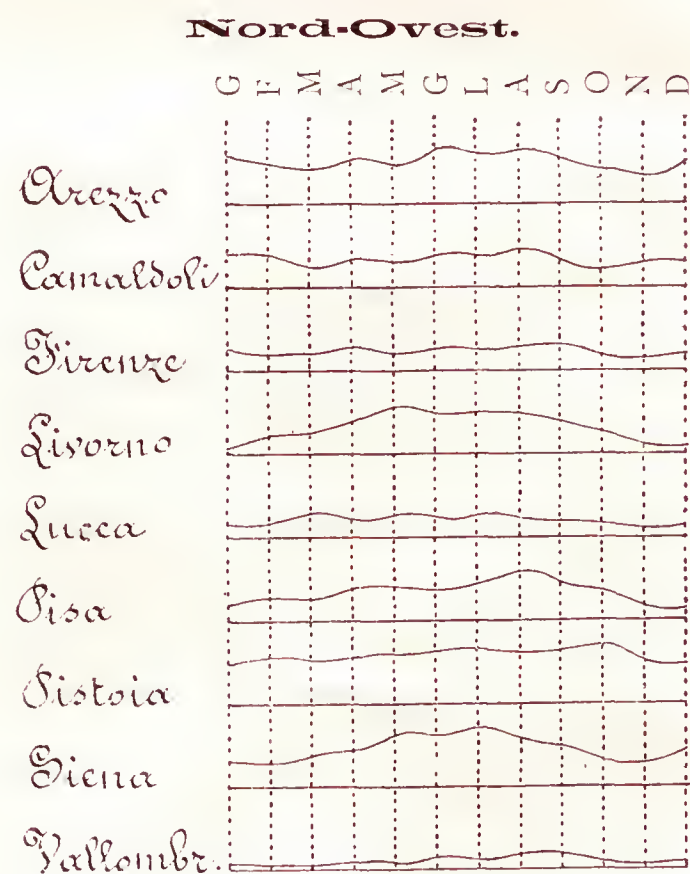 Nord-Ovest.
G F M A M G L A S O N D
Arezzo
Camaldoli
Firenze
Livorno
Lucca
Pisa
Pistoia
Siena
Vallombr.